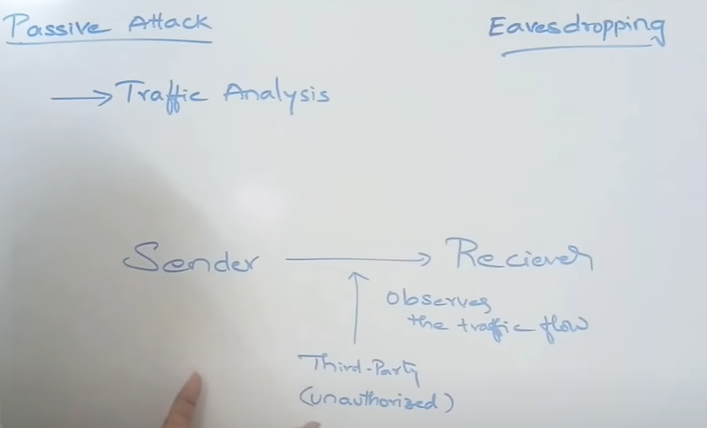 Passive Attack
Eavesdropping
→ Traffic Analysis
Sender → Reciever
Observes
the traffic flow
Third-Party
(unauthorized)